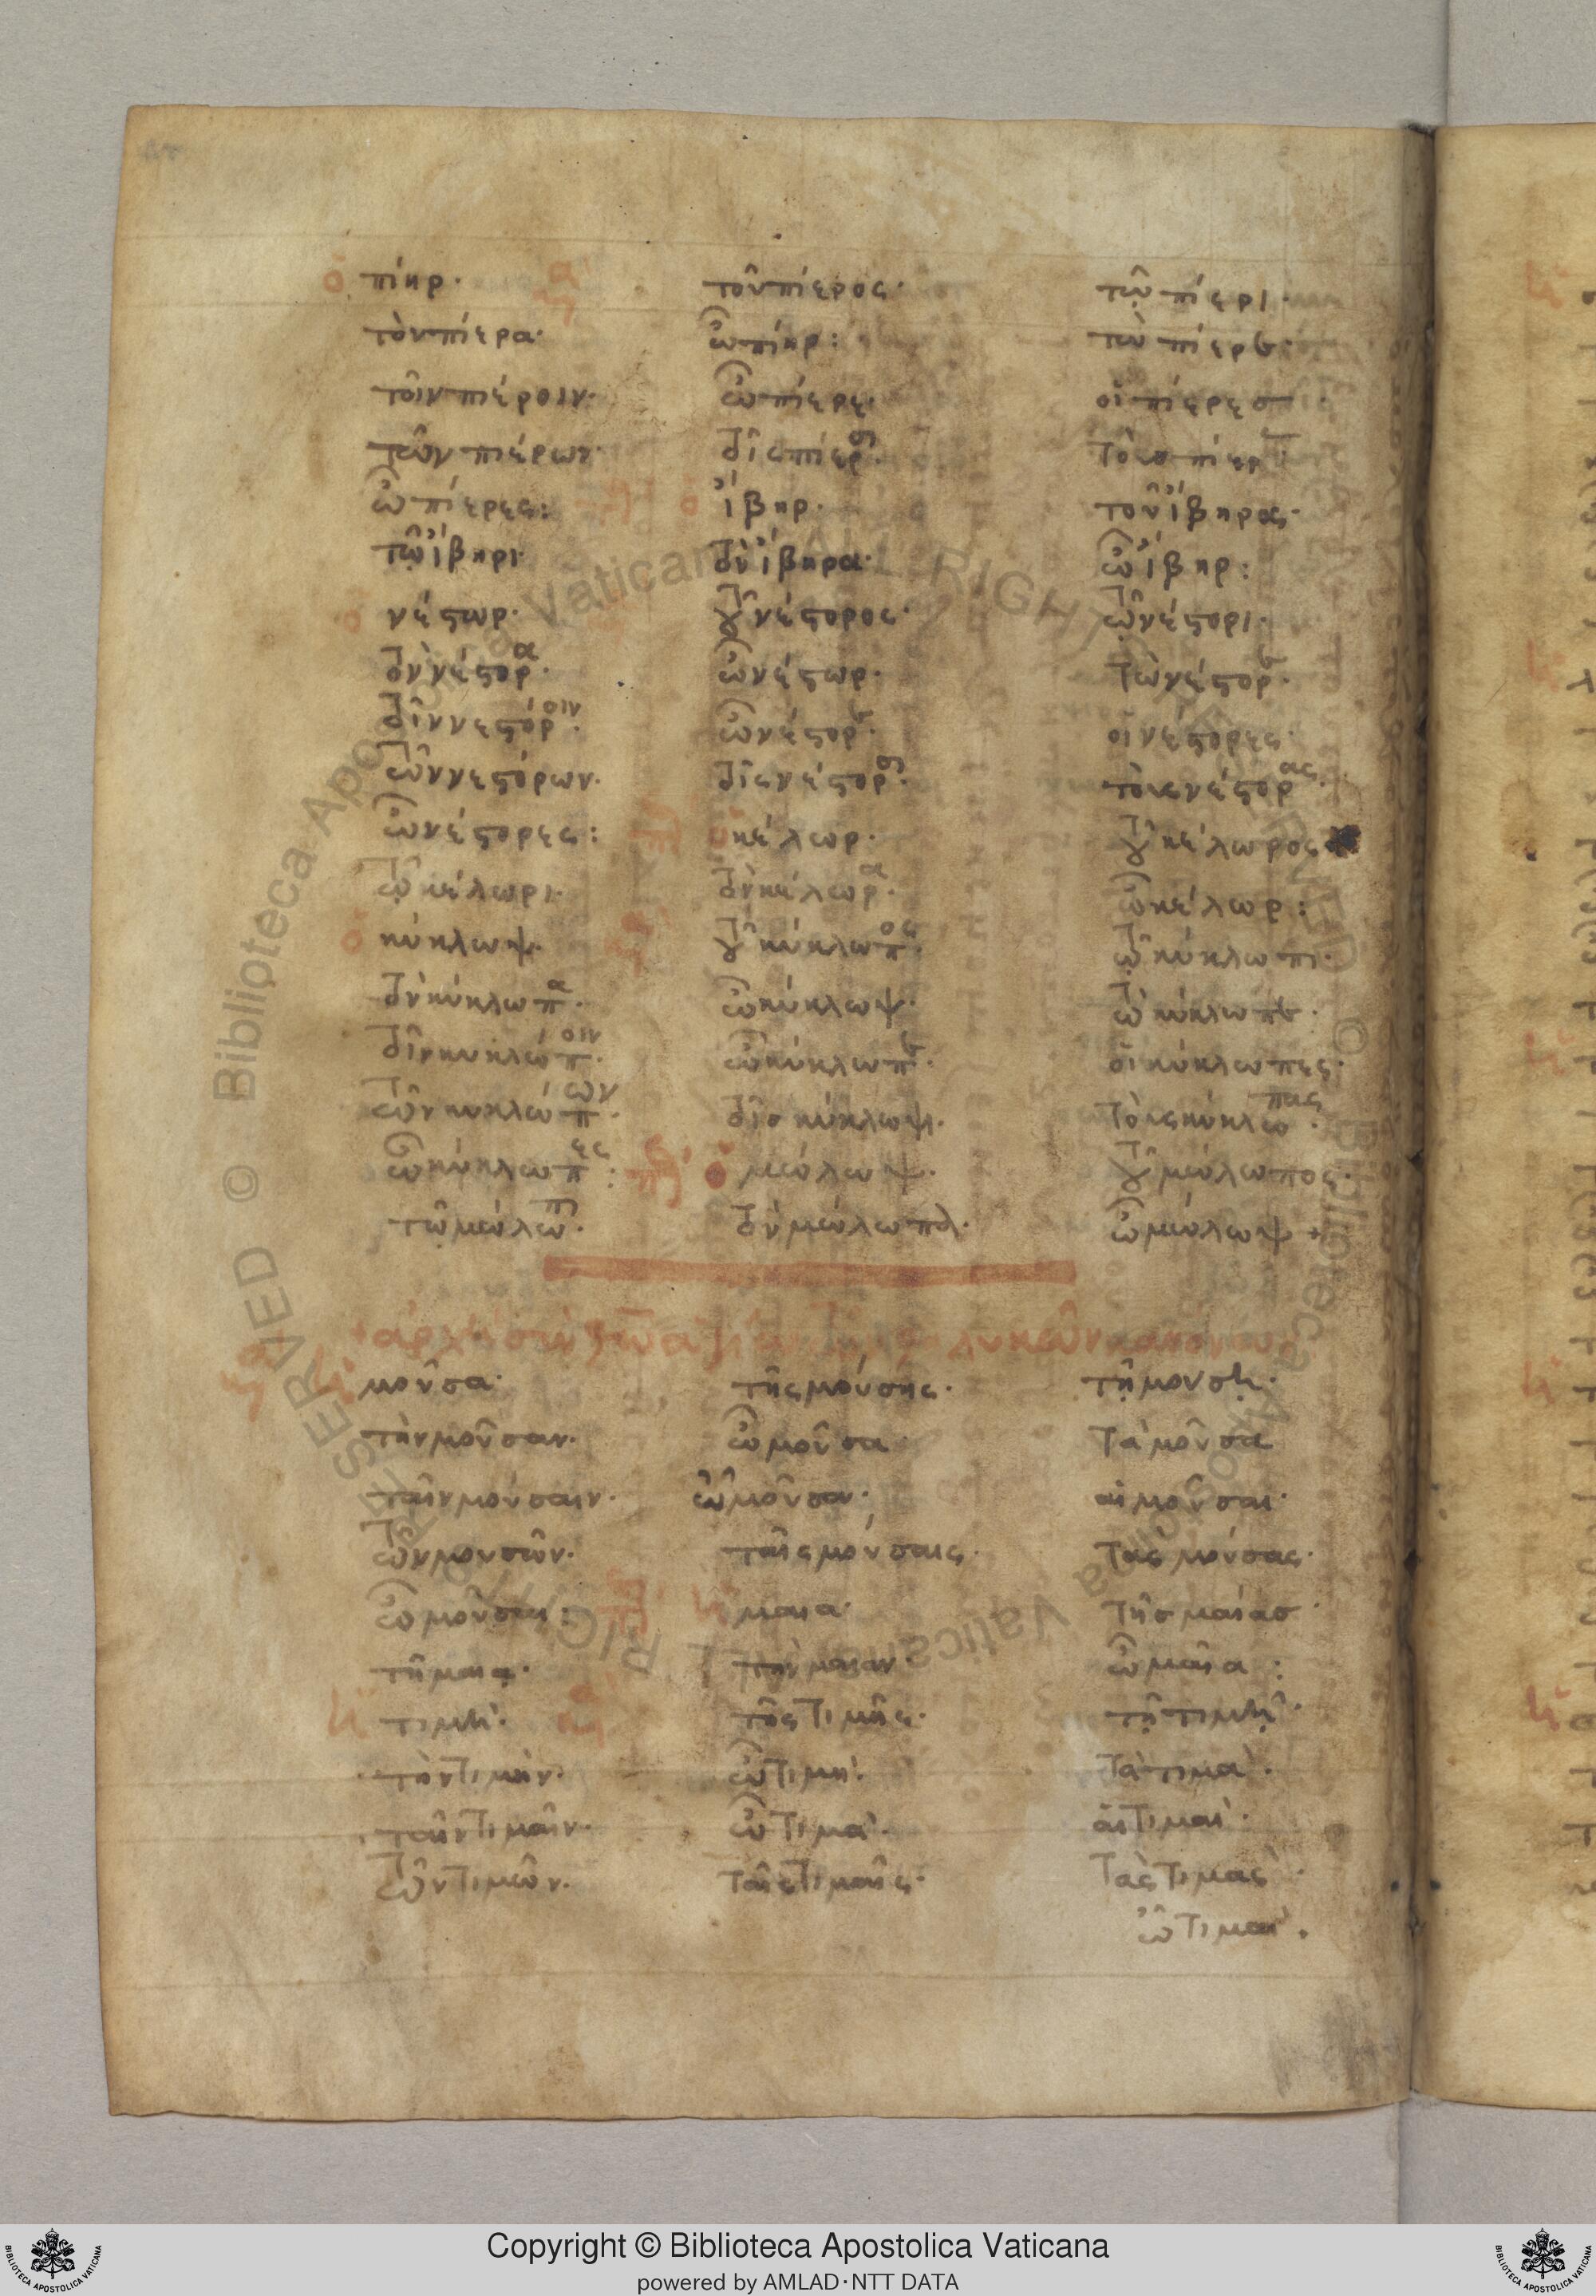 ὁ πίηρ· τοῦ πίερος· τῷ πίερι·
τὸν πίερα· ὦ πίηρ: τὼ πίερε·
τοῖν πιέροιν· ὦ πίερε· οἱ πίερες
τῶν πιέρων· τοῖς πίερσι· τοὺς πίερας
ὦ πίερες: ὁ ἴβηρ· τοῦ ἴβηρος·
τῷ ἴβηρι· τὸν ἴβηρα· ὦ ἴβηρ:
ὁ νέστωρ· τοῦ νέστορος· τῷ νέστορι·
τὸν νέστορα· ὦ νέστωρ· τὼ νέστορε·
τοῖν νεστόροιν· ὦ νέστορε· οἱ νέστορες·
τῶν νεστόρων· τοῖς νέστορσι· τοὺς νέστορας·
ὦ νέστορες: ὁ κέλωρ· τοῦ κέλωρος
τῷ κέλωρι· τὸν κέλωρα· ὦ κέλωρ:
ὁ κύκλωψ· τοῦ κύκλωπος· τῷ κύκλωπι·
τὸν κύκλωπα· ὦ κύκλωψ· τὼ κύκλωπε·
τοῖν κυκλώποιν· ὦ κύκλωπε· οἱ κύκλωπες·
τῶν κυκλώπων· τοῖς κύκλωψι· τοὺς κύκλωπας·
ὦ κύκλωπες: ὁ μύλωψ· τοῦ μύλωπος·
τῷ μύλωπι· τὸν μύλωπα· ὦ μύλωψ +
+ ἀρχὴ σὺν θεῷ τῶν θηλυκῶν κανόνων
μοῦσα· τῆς μούσης· τῇ μούσῃ·
τὴν μοῦσαν· ὦ μοῦσα τὰ μούσα
ταῖν μούσαιν· ὦ μοῦσα· αἱ μοῦσαι·
τῶν μουσῶν· ταῖς μούσαις· τὰς μούσας·
ὦ μοῦσαι: ἡ μαῖα· τῆς μαίας·
τῇ μαίᾳ· τὴν μαῖαν· ὦ μαῖα:
ἡ τιμή· τῆς τιμῆς· τῇ τιμῇ·
τὴν τιμήν· ὦ τιμή· τὰ τιμά·
ταῖν τιμαῖν· ὦ τιμά· αἱ τιμαί·
τῶν τιμῶν· ταῖς τιμαῖς· τὰς τιμάς·
ὦ τιμαί·
Copyright © Biblioteca Apostolica Vaticana
powered by AMLAD·NTT DATA